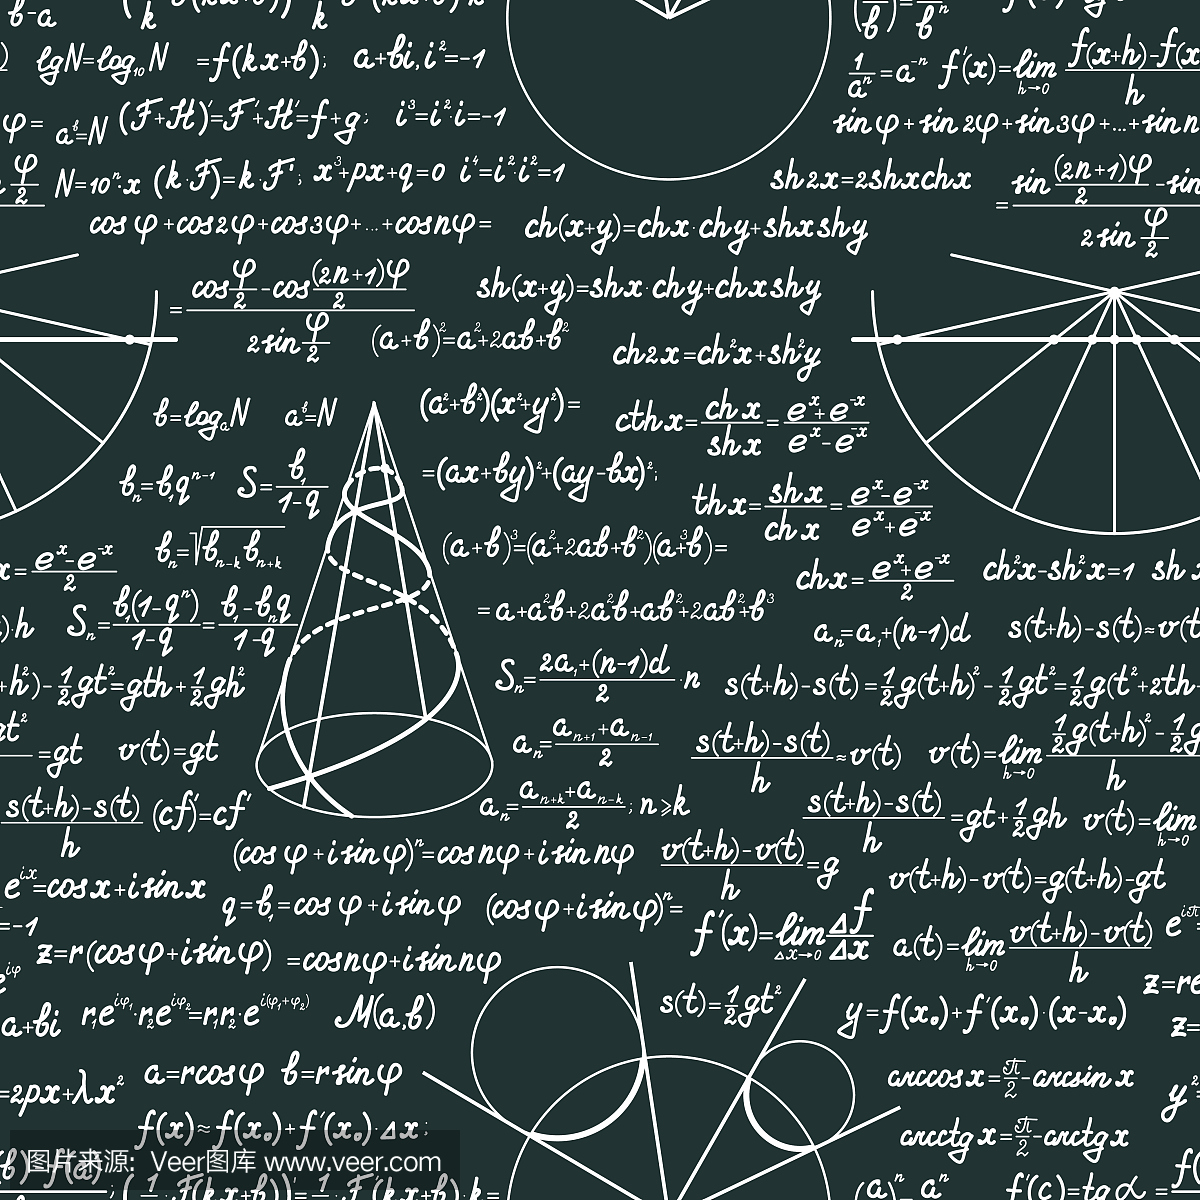 b-a
lgN=log₁₀N =f(kx+b); a+bi, i²=-1
1/aⁿ=a⁻ⁿ f'(x)=lim h→0 f(x+h)-f(x)/h
φ= aᵇ=N (F+H)'=F'+H'=f+g; i³=i²·i=-1
sinφ+sin2φ+sin3φ+...+sinn
φ/2 N=10ⁿ·x (k·F)'=k·F'; x³+px+q=0 i⁴=i²·i²=1
sh2x=2shxchx
= sin (2n+1)φ/2 -sin / 2 sin φ/2
cosφ+cos2φ+cos3φ+...+cosnφ= ch(x+y)=chx·chy+shxshy
= cos φ/2 -cos (2n+1)φ/2 / 2 sin φ/2
sh(x+y)=shx·chy+chxshy
(a+b)²=a²+2ab+b²
ch2x=ch²x+sh²y
b=logₐN aᵇ=N (a²+b²)(x²+y²)=
cthx= chx/shx = eˣ+e⁻ˣ/eˣ-e⁻ˣ
bₙ=b₁qⁿ⁻¹ S= b₁/1-q =(ax+by)²+(ay-bx)²;
thx= shx/chx = eˣ-e⁻ˣ/eˣ+e⁻ˣ
bₙ=√bₙ₋ₖbₙ₊ₖ (a+b)³=(a²+2ab+b²)(a+b)=
x= eˣ-e⁻ˣ/2 chx= eˣ+e⁻ˣ/2 ch²x-sh²x=1 sh
)·h Sₙ= b₁(1-qⁿ)/1-q = b₁-bₙq/1-q =a+a²b+2a²b+ab²+2ab²+b³
aₙ=a₁+(n-1)d s(t+h)-s(t)≈v(t)
+h²)- 1/2 gt²=gth+ 1/2 gh² Sₙ= 2a₁+(n-1)d/2 ·n s(t+h)-s(t)= 1/2 g(t+h)²- 1/2 gt²= 1/2 g(t²+2th
gt² =gt v(t)=gt aₙ= aₙ₊₁+aₙ₋₁/2 s(t+h)-s(t)/h ≈v(t) v(t)=lim h→0 1/2 g(t+h)²- 1/2 g/h
s(t+h)-s(t)/h (cf)'=cf' aₙ= aₙ₊ₖ+aₙ₋ₖ/2; n≥k s(t+h)-s(t)/h =gt+ 1/2 gh v(t)=lim h→0
(cosφ+isinφ)ⁿ=cosnφ+isinnφ v(t+h)-v(t)/h =g
eⁱˣ=cosx+isinx v(t+h)-v(t)=g(t+h)-gt
=-1 q=b₁=cosφ+isinφ (cosφ+isinφ)ⁿ=
f'(x)=lim Δx→0 Δf/Δx a(t)=lim h→0 v(t+h)-v(t)/h
z=r(cosφ+isinφ) =cosnφ+isinnφ
a+bi r₁eⁱᵠ¹·r₂eⁱᵠ²=r₁r₂·eⁱ⁽ᵠ¹⁺ᵠ²⁾ M(a,b) s(t)= 1/2 gt² y=f(x₀)+f'(x₀)·(x-x₀)
=2px+λx² a=rcosφ b=rsinφ arccosx= π/2 -arcsinx
f(x)≈f(x₀)+f'(x₀)·Δx; arcctgx= π/2 -arctgx
图片来源：Veer图库 www.veer.com
f'(c)=tgα=